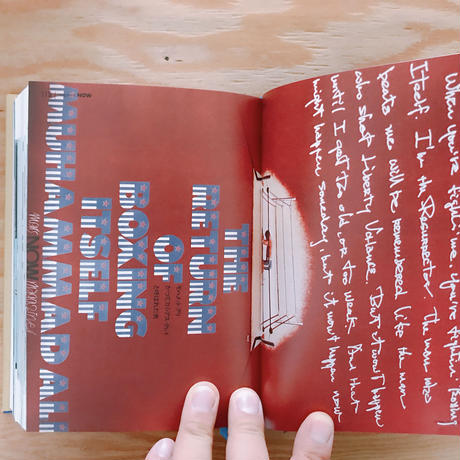 NOW
THE
RETURN
OF
BOXING
ITSELF
モハメド・アリ
かつてカシアス・クレイ
と呼ばれた男
MUHAMMAD ALI
NOW
When you're fightin' me, you're fightin' Boxing
Itself. I'm the Resurrector. The man who
beats me will be remembered like the man
who shot Liberty Valance. But it won't happen
until I get to old or to weak. But that
might happen someday, but it won't happen now